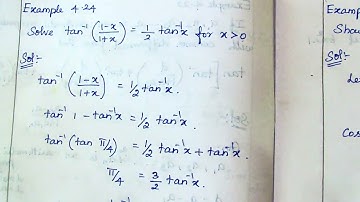 Example 4.24
Solve tan⁻¹ (1-x/1+x) = 1/2 tan⁻¹x for x>0
Sol:-
tan⁻¹ (1-x/1+x) = 1/2 tan⁻¹x.
tan⁻¹ 1 - tan⁻¹x = 1/2 tan⁻¹x.
tan⁻¹ (tan π/4) = 1/2 tan⁻¹x + tan⁻¹x.
π/4 = 3/2 tan⁻¹x.
Examp
Show
Sol:-
Le
Cos